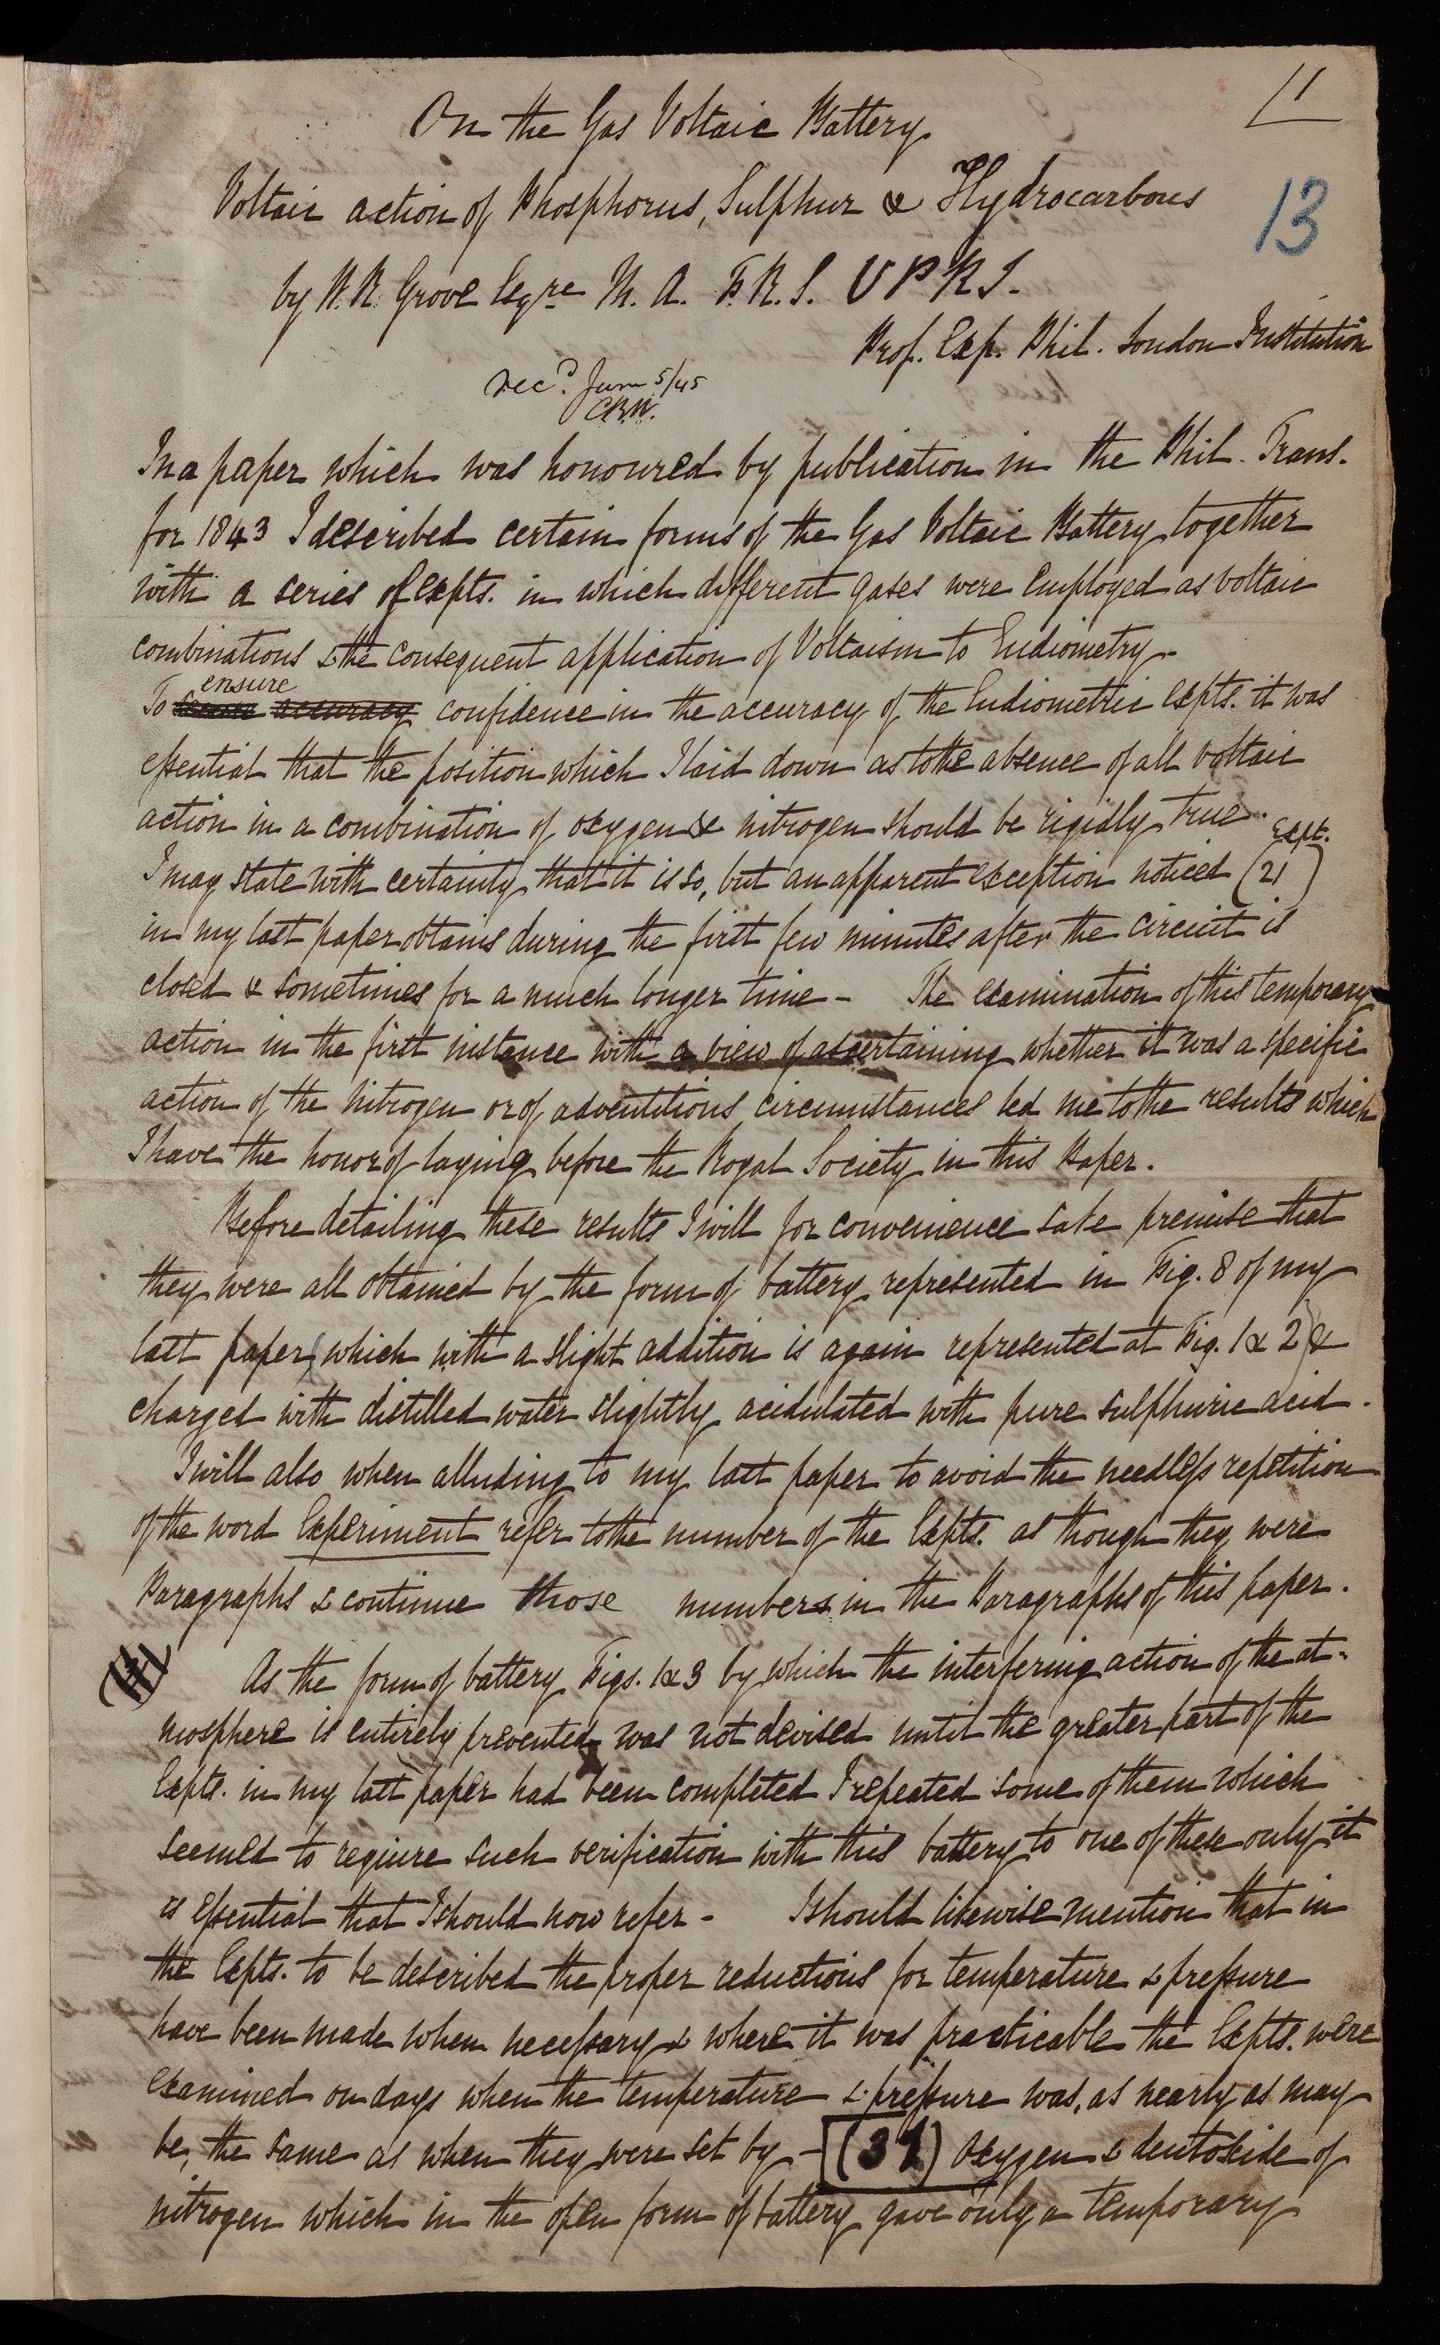 11
13
On the Gas Voltaic Battery
Voltaic action of Phosphorus, Sulphur & Hydrocarbons
by W. R. Grove Esqre M. A. F. R. S. VPRS.
Prof. Exp. Phil. London Institution
recd. June 5/45
In a paper which was honoured by publication in the Phil. Trans.
for 1843 I described certain forms of the Gas Voltaic Battery together
with a series of Expts. in which different gases were employed as voltaic
combinations & the consequent application of Voltaism to Eudiometry -
ensure
To secure accuracy confidence in the accuracy of the Eudiometric Expts. it was
essential that the position which I laid down as to the absence of all voltaic
action in a combination of oxygen & nitrogen should be rigidly true.
Expt.
I may state with certainty that it is so, but an apparent exception noticed (21)
in my last paper obtains during the first few minutes after the circuit is
closed & sometimes for a much longer time - The examination of this temporary
action in the first instance with a view of ascertaining whether it was a specific
action of the nitrogen or of adventitious circumstances led me to the results which
I have the honor of laying before the Royal Society in this Paper.
Before detailing these results I will for convenience sake premise that
they were all obtained by the form of battery represented in Fig. 8 of my
last paper, which with a slight addition is again represented at Fig. 1 & 2 &
charged with distilled water slightly acidulated with pure sulphuric acid.
I will also when alluding to my last paper to avoid the needless repetition
of the word Experiment refer to the number of the Expts. as though they were
Paragraphs & continue those numbers in the Paragraphs of this paper.
As the form of battery Figs. 1 & 3 by which the interfering action of the at-
mosphere is entirely prevented was not devised until the greater part of the
Expts. in my last paper had been completed I repeated some of them which
seemed to require such verification with this battery to one of these only it
is essential that I should now refer - I should likewise mention that in
the Expts. to be described the proper reductions for temperature & pressure
have been made when necessary & where it was practicable the Expts. were
examined on days when the temperature & pressure was, as nearly as may
be, the same as when they were set by - (31) Oxygen & deutoxide of
nitrogen which in the open form of battery gave only a temporary